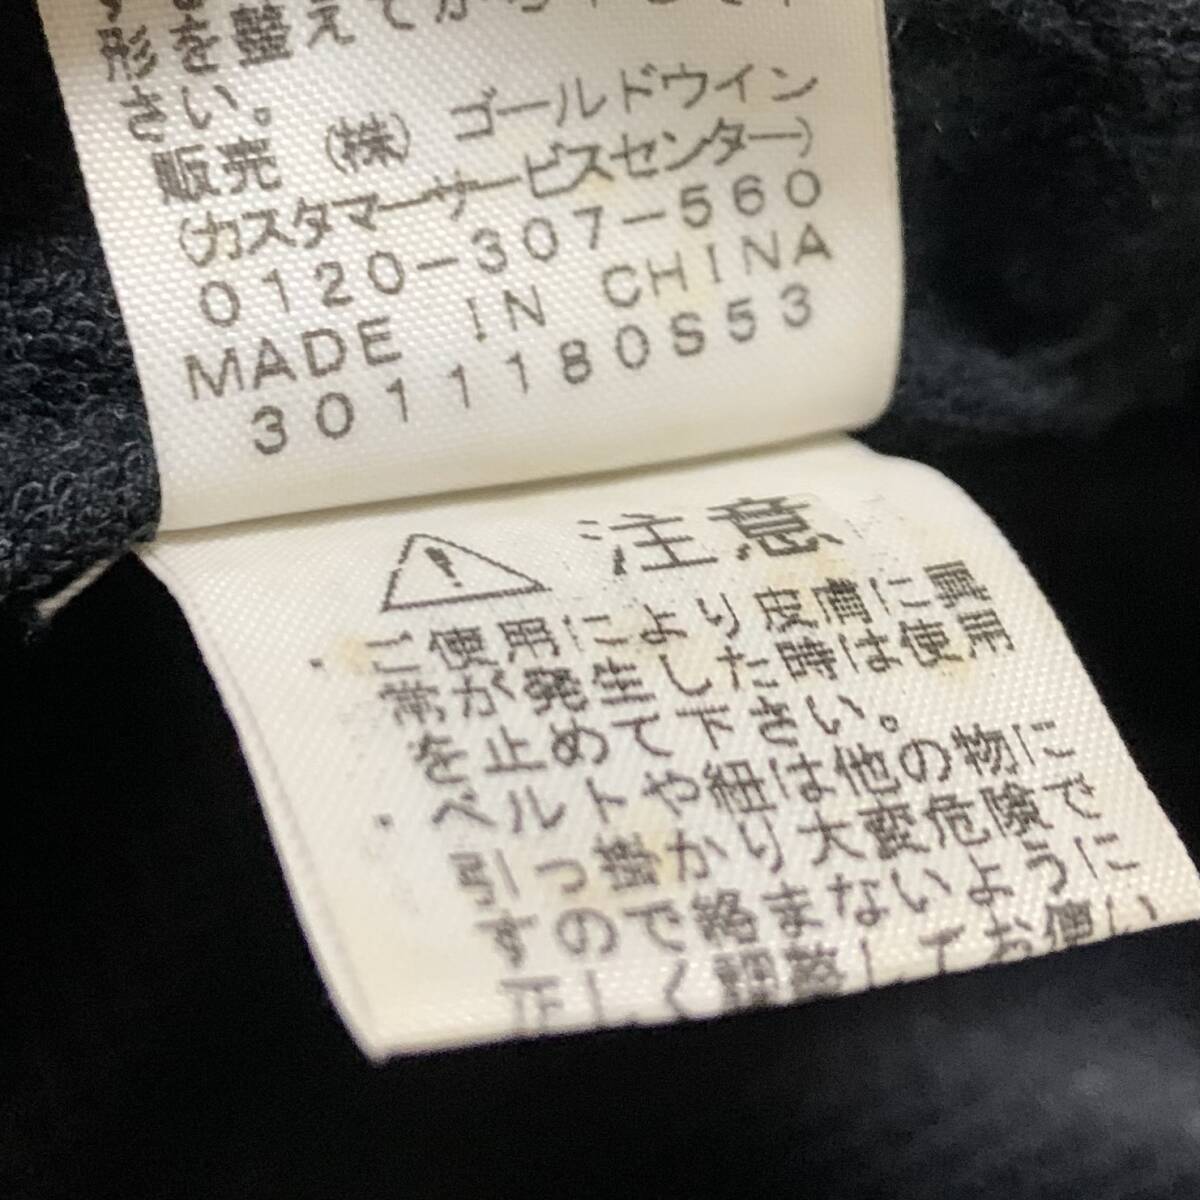 形を整えてから干して下
さい。
販売 (株) ゴールドウイン
(カスタマーサービスセンター)
0120-307-560
MADE IN CHINA
3011180S53
注意
・ご使用により皮膚に異
常が発生した時は使用
を止めて下さい。
・ベルトや紐は他の物に
引っ掛かり大変危険で
すので絡まないように
正しく調整してお使い